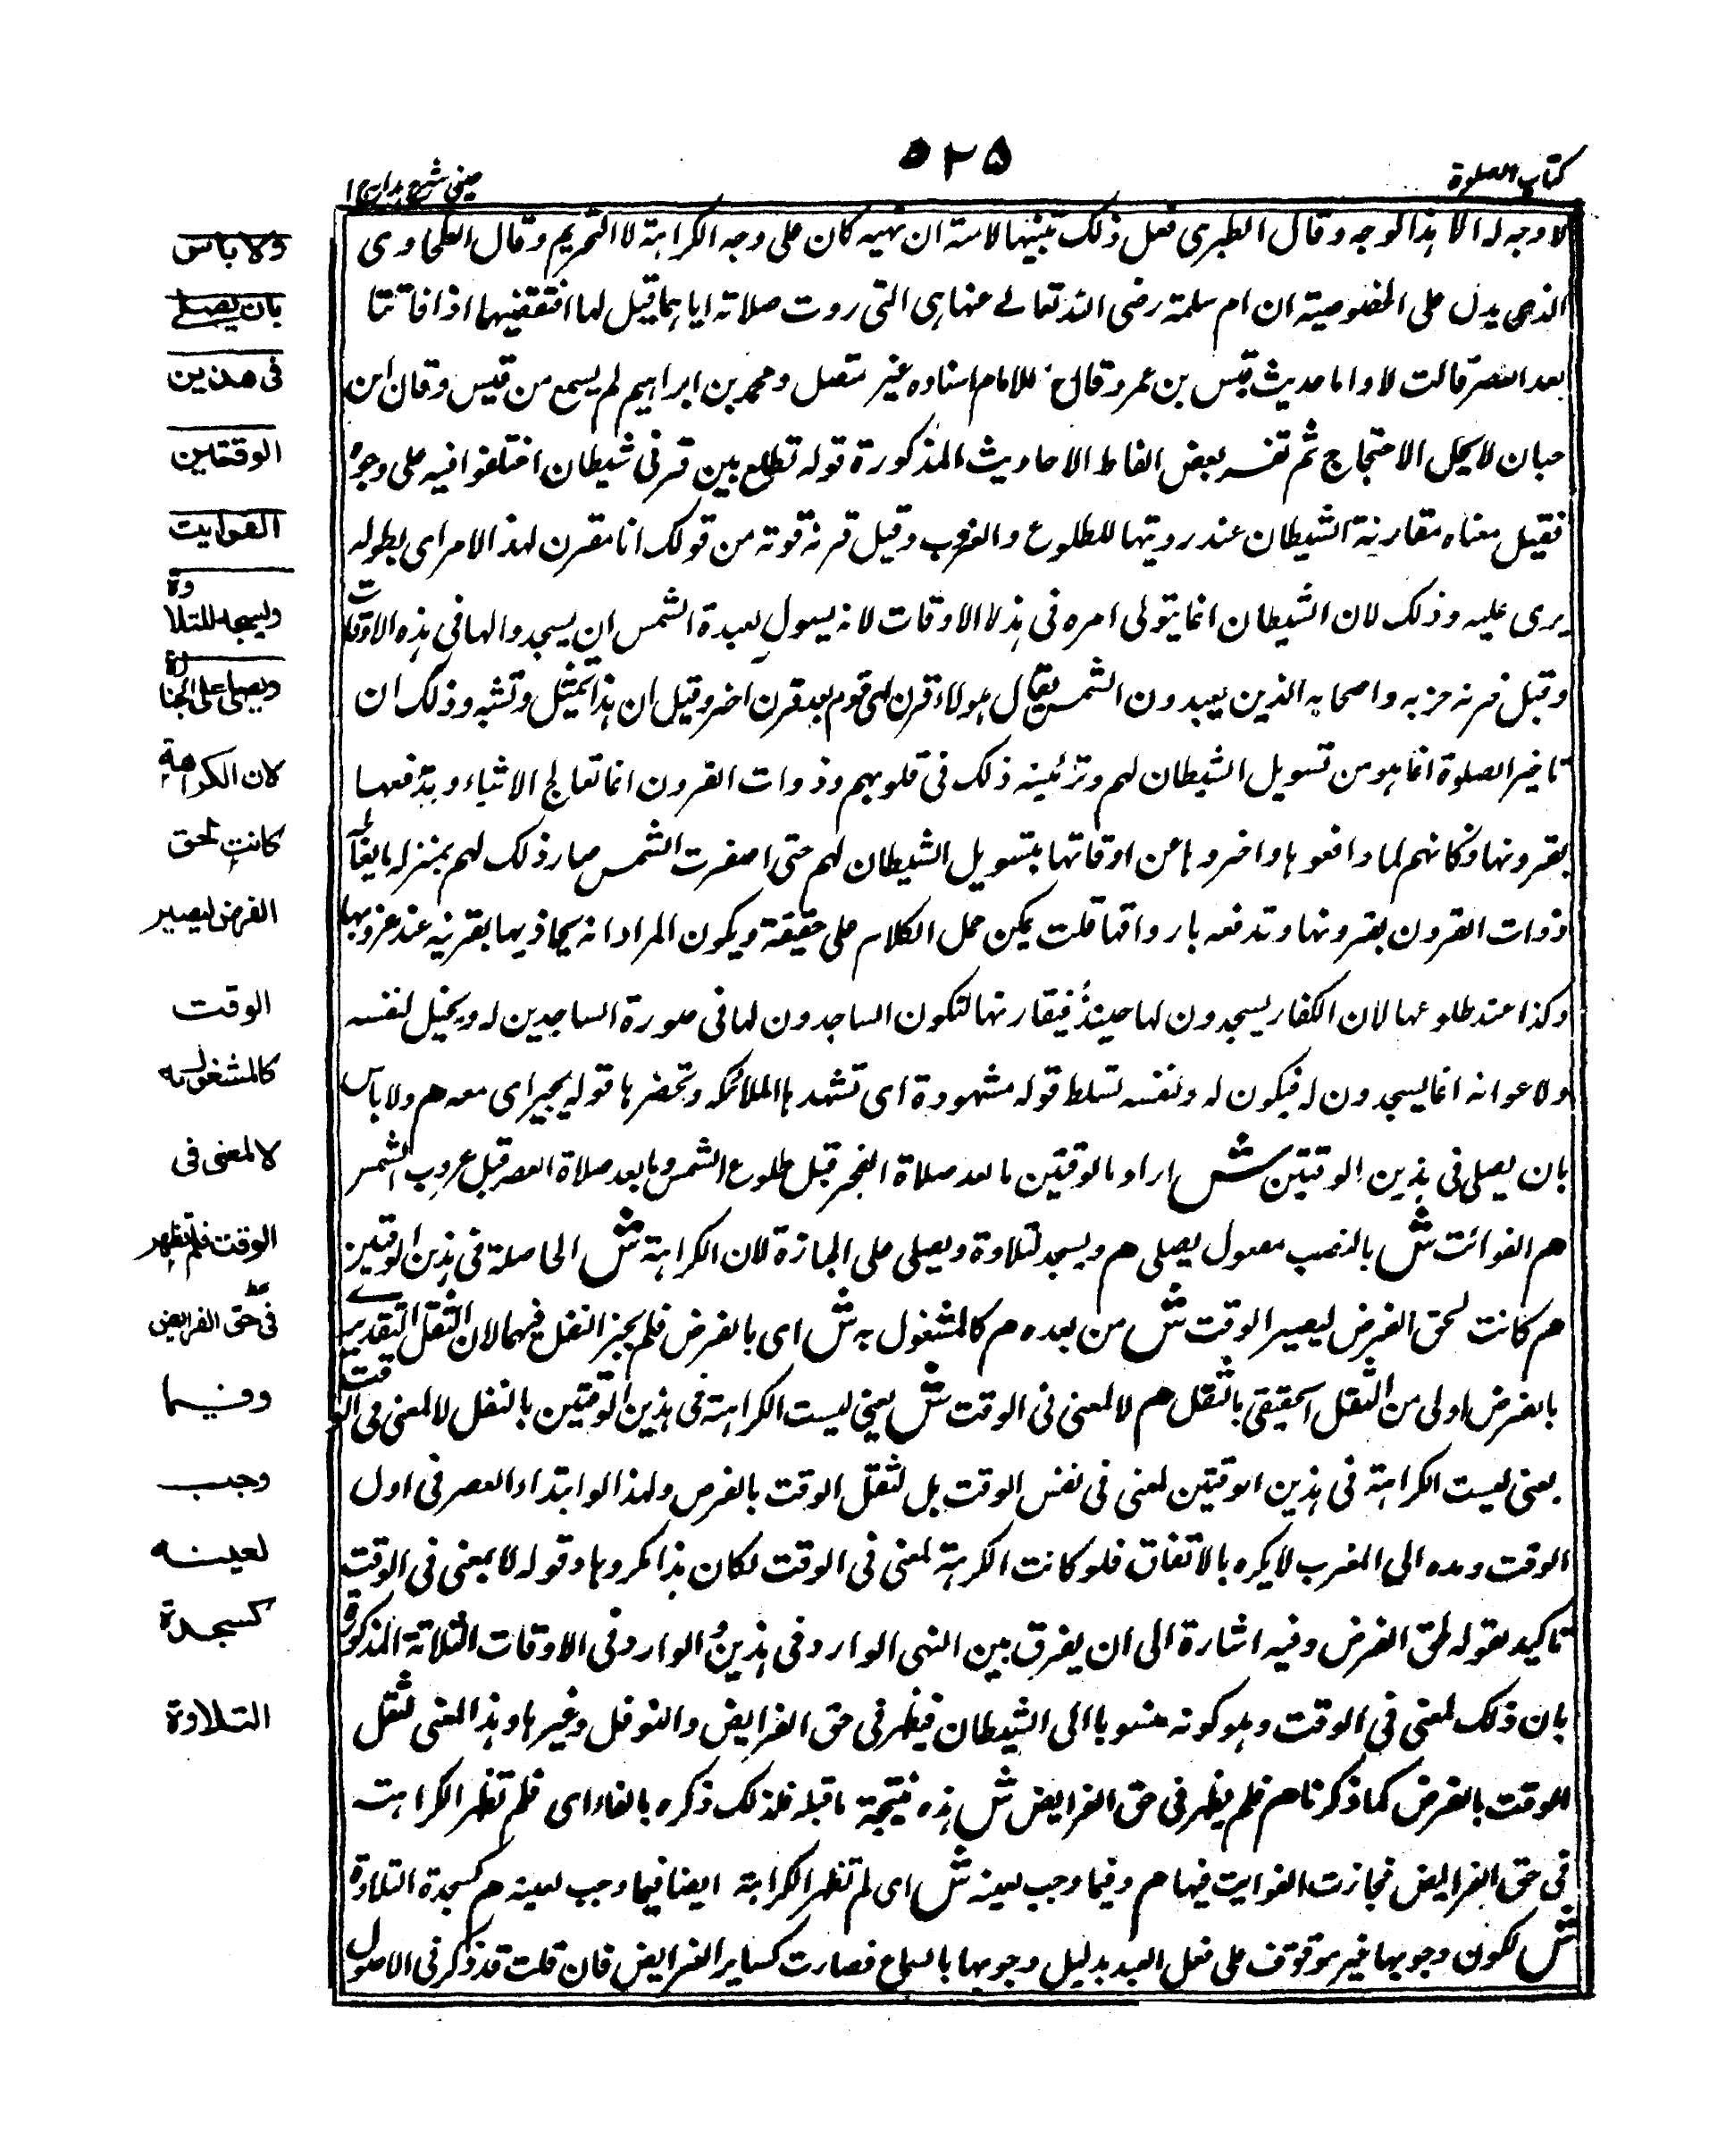 كتاب الصلوة
٥٢٥
عينى شرح هدايه ج ١
لا وجه له الا هذا الوجه وقال الطبرى فعل ذلك تنبيها لامته ان نهيه كان على وجه الكراهة لا التحريم وقال الطحاوى
الذى يدل على الخصوصية ان ام سلمة رضى الله تعالى عنها هى التى روت صلاته اياهما قيل لها افنقضيهما اذا فاتتا
بعد العصر قالت لا واما حديث قيس بن عمرو قال الامام اسناده غير متصل ومحمد بن ابراهيم لم يسمع من قيس وقال ابن
حبان لا يحل الاحتجاج ثم تفسر بعض الفاظ الاحاديث المذكورة قوله تطلع بين قرنى شيطان اختلفوا فيه على وجوه
فقيل معناه مقارنة الشيطان عند رويتها للطلوع والغروب وقيل قرنه قوته من قولك انا مقرن لهذا الامر اى يطوله
يرى عليه وذلك لان الشيطان انما يتولى امره فى هذه الاوقات لانه يسول لعبدة الشمس ان يسجدوا لها فى هذه الاوقات
وقيل قرنه حزبه واصحابه الذين يعبدون الشمس يقال هولاء قرن اى قوم بعد قرن اخر وقيل ان هذا تمثيل وتشبه وذلك ان
تاخير الصلوة انما هو من تسويل الشيطان لهم وتزئينه ذلك فى قلوبهم وذوات القرون انما تعالج الاشياء وتدفعها
بقرونها فكانهم لما دافعوها واخروها عن اوقاتها بتسويل الشيطان لهم حتى اصفرت الشمس صار ذلك لهم بمنزله ما يعالجه
ذوات القرون بقرونها وتدفعه بارواقها قلت يمكن حمل الكلام على حقيقة ويكون المراد انه يحاذيها بقرنيه عند غروبها
وكذا عند طلوعها لان الكفار يسجدون لها حينئذ فيقارنها لتكون الساجدون لها فى صورة الساجدين له ويخيل لنفسه
ولاعوانه انما يسجدون له فيكون له ولنفسه تسلط قوله مشهودة اى تشهدها الملائكه وتحضرها قوله يجير اى معه هم ولا باس
بان يصلى فى هذين الوقتين ش اراد بالوقتين ما بعد صلاة الفجر قبل طلوع الشمس وما بعد صلاة العصر قبل غروب الشمس
هم الفوائت ش بالنصب مفعول يصلى هم ويسجد لتلاوة ويصلى على الجنازة لان الكراهة ش الحاصلة فى هذين الوقتين
هم كانت لحق الفرض ليصير الوقت ش من بعده هم كالمشغول به ش اى بالفرض فلم يجز النفل فيهما لان الثقل التقديرى
بالفرض اولى من الثقل الحقيقى بالثقل هم لا لمعنى فى الوقت ش يعنى ليست الكراهة فى هذين الوقتين بالنفل لا لمعنى فى الوقت
يعنى ليست الكراهة فى هذين الوقتين لمعنى فى نفس الوقت بل لثقل الوقت بالفرص ولهذا لو ابتداء العصر فى اول
الوقت ومده الى المغرب لا يكره بالاتفاق فلو كانت الكرهة لمعنى فى الوقت لكان هذا مكروها وقوله لا بمعنى فى الوقت
تاكيد لقوله لحق الفرض وفيه اشارة الى ان يفرق بين النهى الوارد فى هذين والوارد فى الاوقات الثلاثة المذكورة
بان ذلك لمعنى فى الوقت وهو كونه منسوبا الى الشيطان فيظهر فى حق الفرايض والنوفل وغيرها وهذا المعنى لثقل
الوقت بالفرض كما ذكرنا هم فلم يظهر فى حق الفرايض ش هذه نتيجة ما قبله فلذلك ذكره بالفاء اى فلم تظهر الكراهت
فى حق الفرايض فجازت الفوايت فيها هم وفيما وجب لعينه ش اى لم تظهر الكراهة ايضا فيما وجب لعينه هم كسجدة التلاوة
ش لكون وجوبها غير موقوف على فعل العبد بدليل وجوبها بالسماع فصارت كساير الفرايض فان قلت قد ذكر فى الاصول
ولا باس
بان يصلے
فى هذين
الوقتين
الفوايت
ويسجد للتلاوة
ويصلى على الجنازة
لان الكراهة
كانت لحق
الفرض ليصير
الوقت
كالمشغول به
لا لمعنى فى
الوقت فلم تظهر
فى حق الفرايض
وفيما
وجب
لعينه
كسجدة
التلاوة